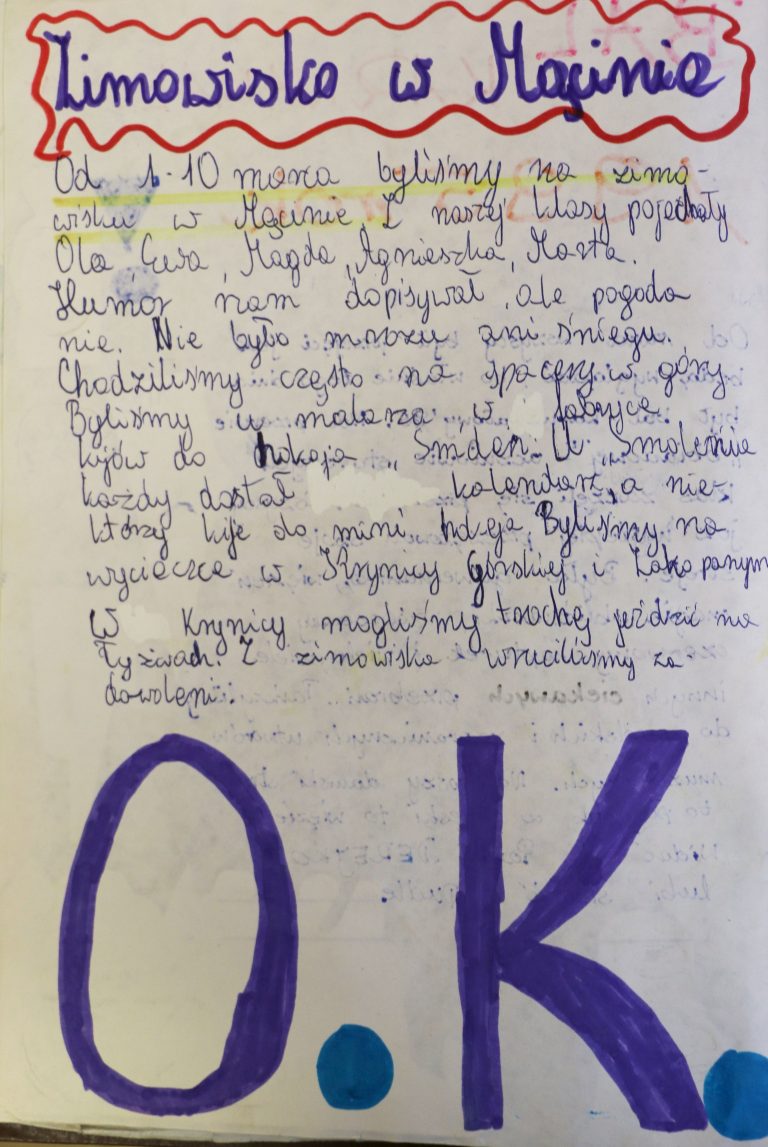 Zimowisko w Męcinie
Od 1-10 marca byliśmy na zimo-
wisku w Męcinie. Z naszej klasy pojechały
Ola, Ewa, Magda, Agnieszka, Marta.
Humor nam dopisywał, ale pogoda
nie. Nie było mrozu ani śniegu.
Chodziliśmy często na spacery w góry
Byliśmy u malarza, w fabryce
kijów do hokeja „Smolen. U „Smolenia
każdy dostał kalendarz, a nie-
którzy kije do mini ho-eja. Byliśmy na
wycieczce w Krynicy Górskiej i Zakopanym
W Krynicy mogliśmy trochę jeździć na
łyżwach. Z zimowiska wróciliśmy za-
dowoleni.
O.K.